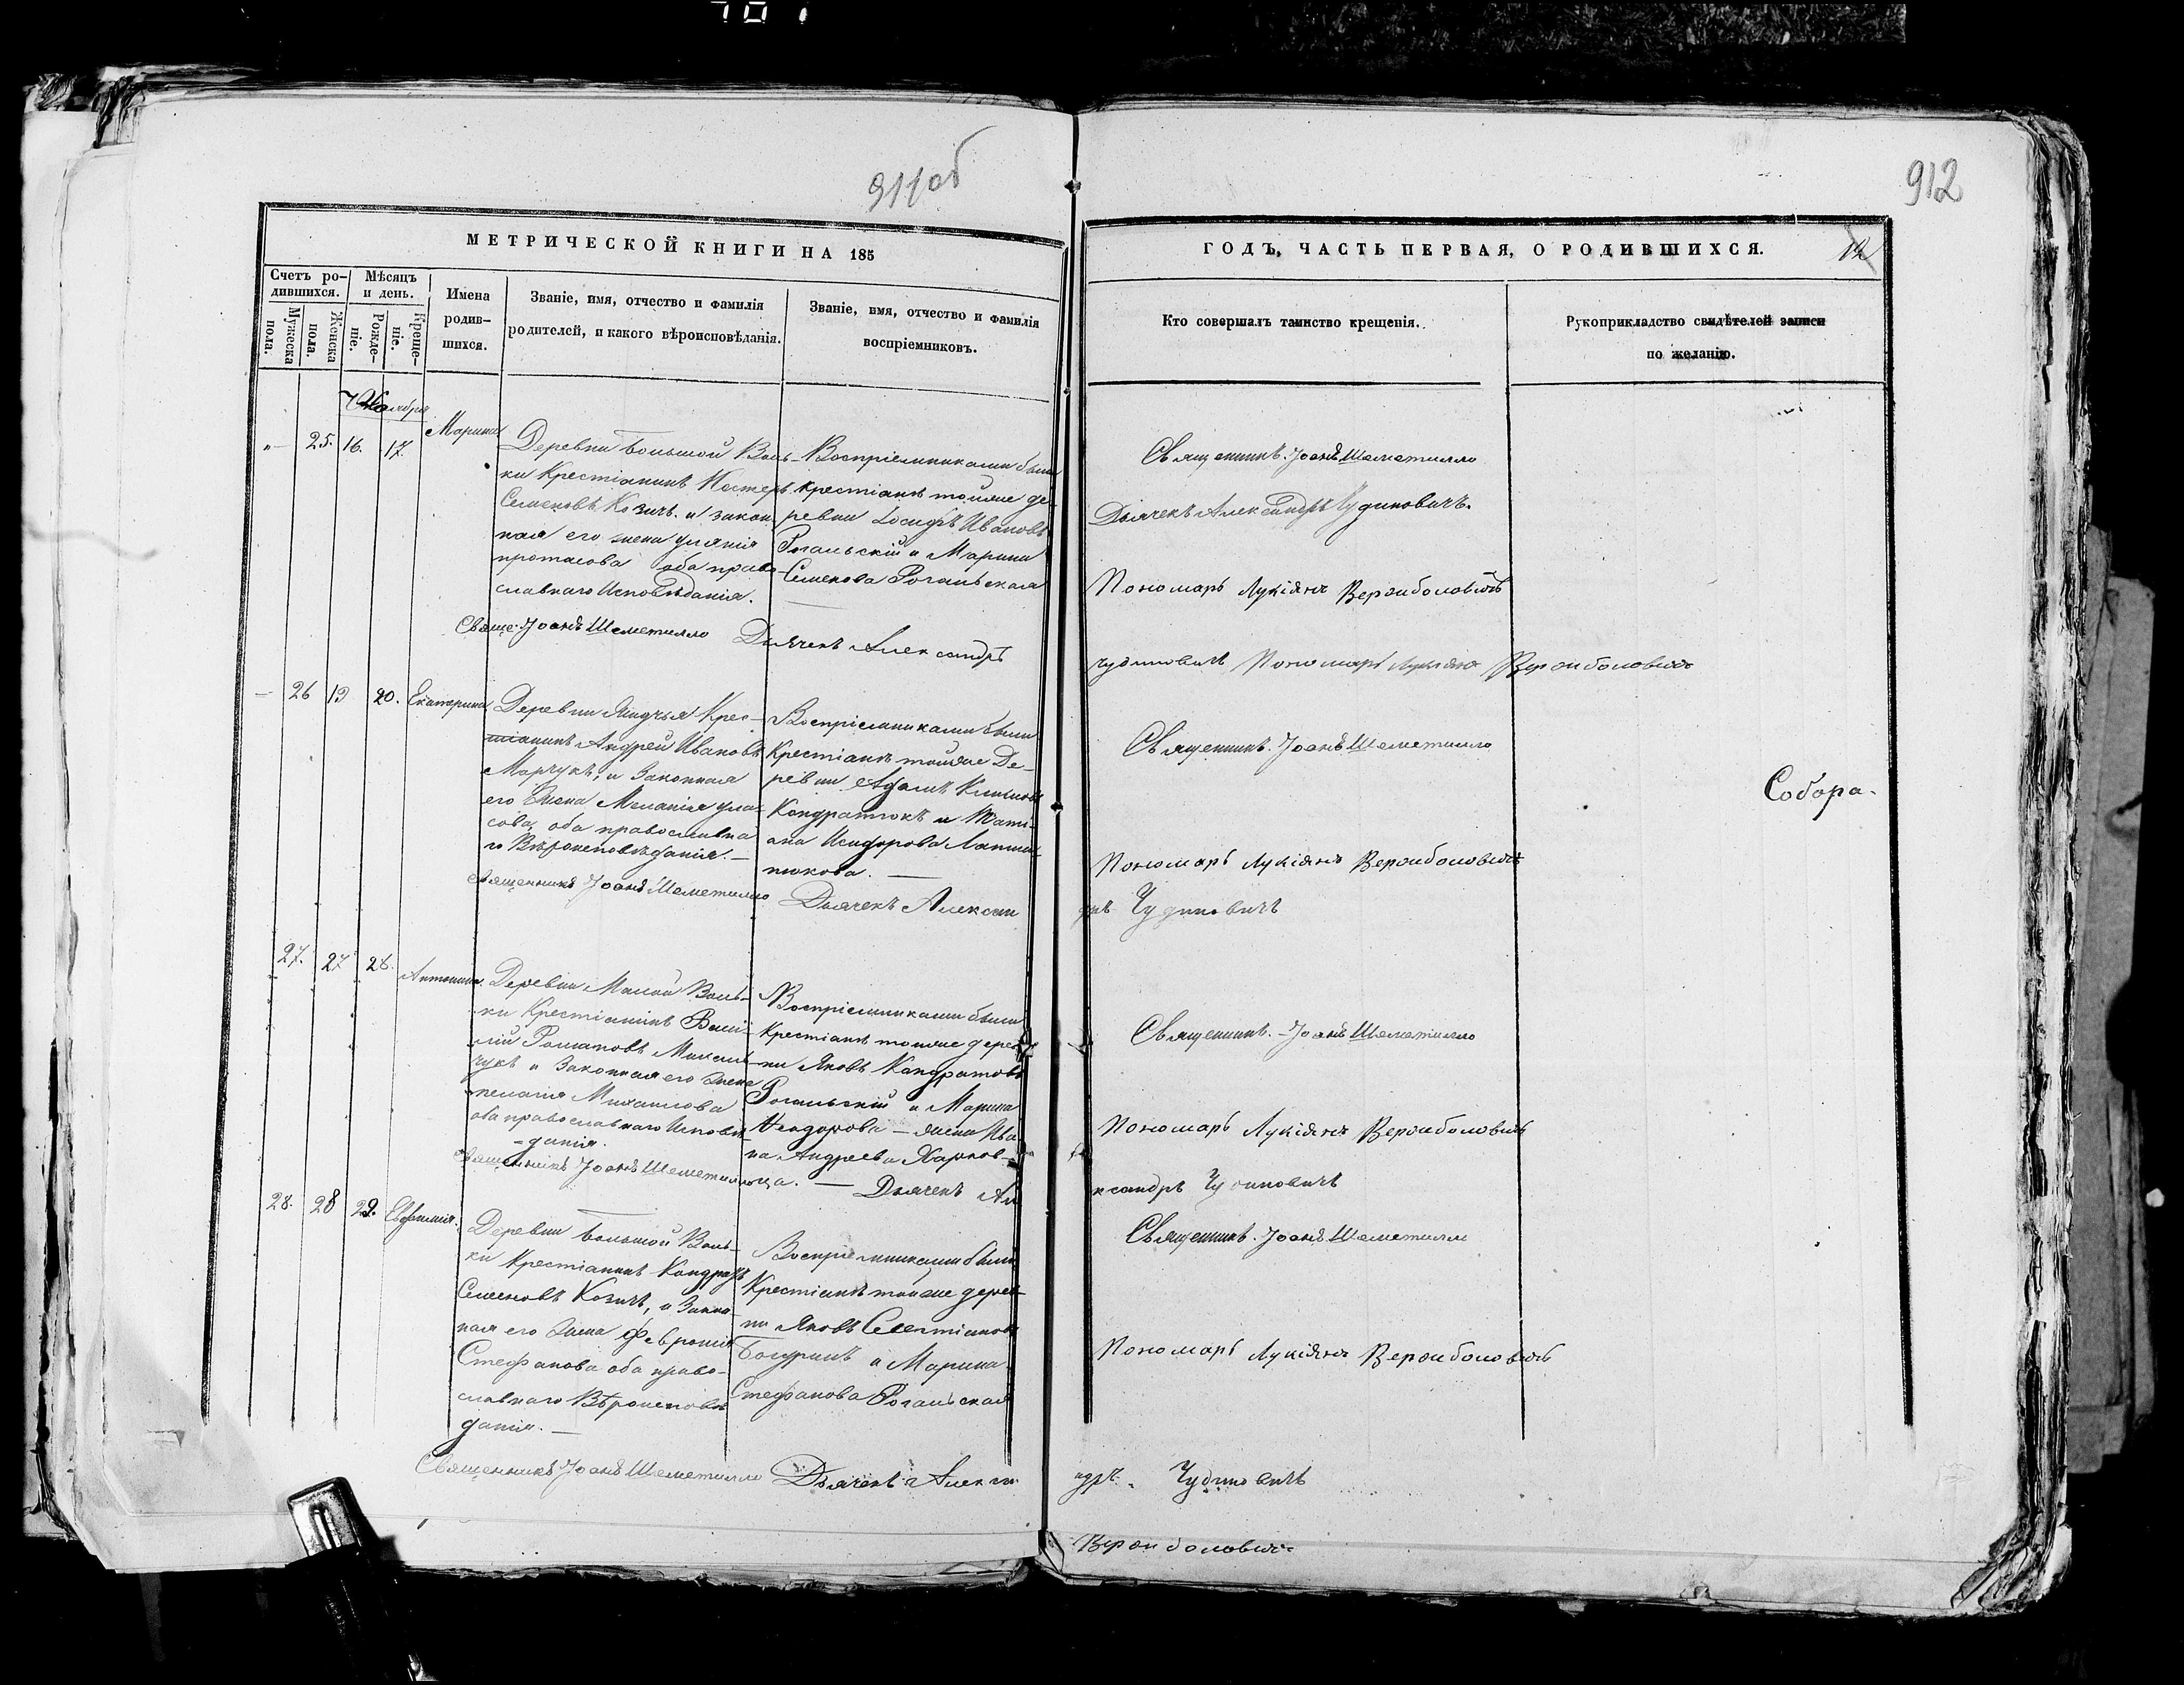 911об
912
МЕТРИЧЕСКОЙ КНИГИ НА 185
ГОДЪ, ЧАСТЬ ПЕРВАЯ, О РОДИВШИХСЯ.
12
Счетъ ро-
дившихся.
Мужеска
пола.
Женска
пола.
Мѣсяцъ
и день.
Рожде-
ніе.
Креще-
ніе.
Имена
родив-
шихся.
Званіе, имя, отчество и фамилія
родителей, и какого вѣроисповѣданія.
Званіе, имя, отчество и фамилія
воспріемниковъ.
Кто совершалъ таинство крещенія.
Рукоприкладство свидѣтелей записи
по желанію.
25. 16. 17. Марина
Деревни Большой Воль-
ки Крестіанинъ Нестеръ
Семеновъ Козичъ. и закон
ная его жена
протасова оба право-
славнаго Исповѣданія.
Воспріемниками были
крестіанѣ тойже де-
ревни Іосифъ Ивановъ
Рогальскій и Марина
Семенова Рогальская
Священникъ. Іоанъ Шеметилло
Дьячекъ Александръ Чудиновичъ.
Пономарь Лукіянъ
Свяще. Іоанъ Шеметилло Дьячекъ Александръ
чудиновичъ Пономарь Лукіянъ
26 19 20. Екатерина
Деревни Крес-
тіанинъ Андрей Ивановъ
Марчукъ, и Законная
его Жена Меланія
сова, оба православна
го Вѣроисповѣданія.—
Воспріемниками были
Крестіанѣ тойже Де-
ревни Адамъ
Кондратюкъ и Тати-
ана Исидорова
тюкова. —
Священникъ. Іоанъ Шеметилло
Собора.
Пономарь Лукіянъ
священникъ Іоанъ Шеметилло Дьячекъ Алексан
дръ Чудиновичъ
27. 27 28. Антонина
Деревни Малой Воль-
ки Крестіанинъ Васи-
лій Романовъ
чукъ и Законная его Жена
пелагія Михаилова
оба православнаго Исповѣ-
-данія.
Воспріемниками были
Крестіанѣ тойже дерев-
ни Яковъ Кондратовъ
Рогальскій и Марина
Феодорова — жена Ива
на Андреева
ца. —
Священникъ. Іоанъ Шеметилло
Пономарь Лукіянъ
священникъ Іоанъ Шеметилло Дьячекъ Але
ксандръ Чудиновичъ
28. 28 29. Евфимія.
Деревни Большой Воль-
ки Крестіанинъ Кондратъ
Семеновъ Козичъ, и Закон
ная его Жена Февронія
Стефанова оба право-
славнаго Вѣроисповѣ
данія.—
Воспріемниками были
Крестіанѣ тойже дерев-
ни Яковъ
и Марина
Стефанова Рогальская
Священникъ. Іоанъ Шеметилло
Пономарь Лукіянъ
Священникъ Іоанъ Шеметилло Дьячекъ Алекса
ндръ. Чудиновичъ